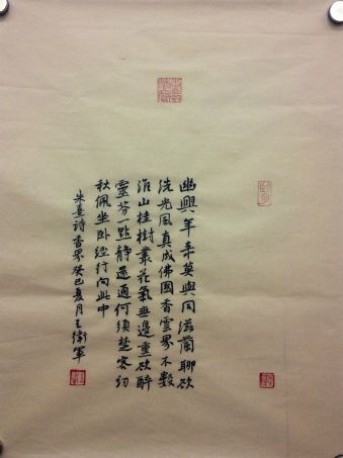 幽興年來莫與同滋蘭聊欲
洗光風真成佛國香雲界不數
淮山桂樹叢花氣無邊熏欲醉
靈芬一點靜還通何須楚客紉
秋佩坐卧經行向此中
朱熹詩香界癸巳夏月王衛軍